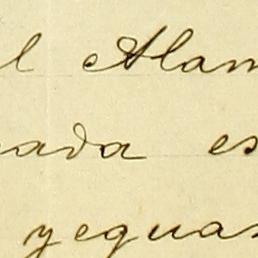 l Alam
nada es
yeguas